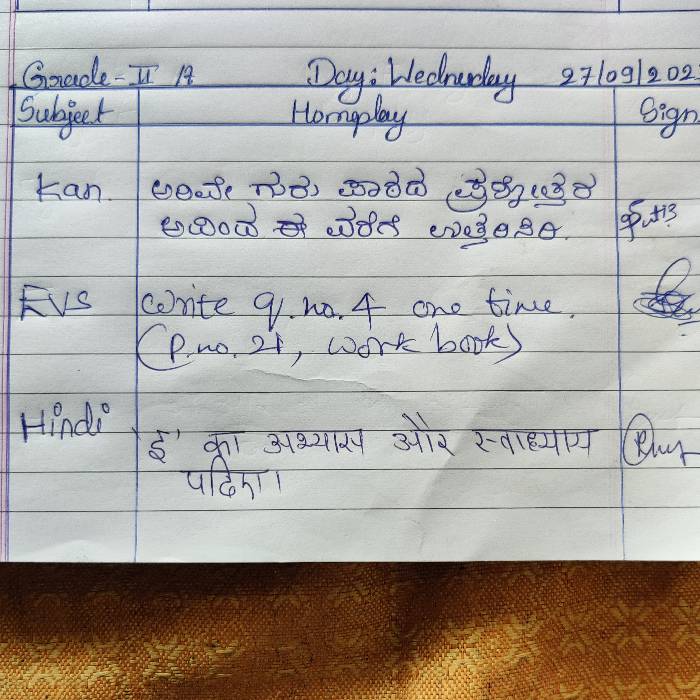 Grade-II A Day: Wednesday 27/09/202
Subject Homeplay Sign
Kan. ಅರಿವೇ ಗುರು ಪಾಠದ ಪ್ರಶ್ನೋತ್ತರ
ಅ ದಿಂದ ಈ ವರೆಗೆ ಉತ್ತರಿಸಿರಿ.
EVS Write q.no.4 one time.
(P.no. 21, work book)
Hindi 'ई' का अभ्यास और स्वाध्याय
पढिए।